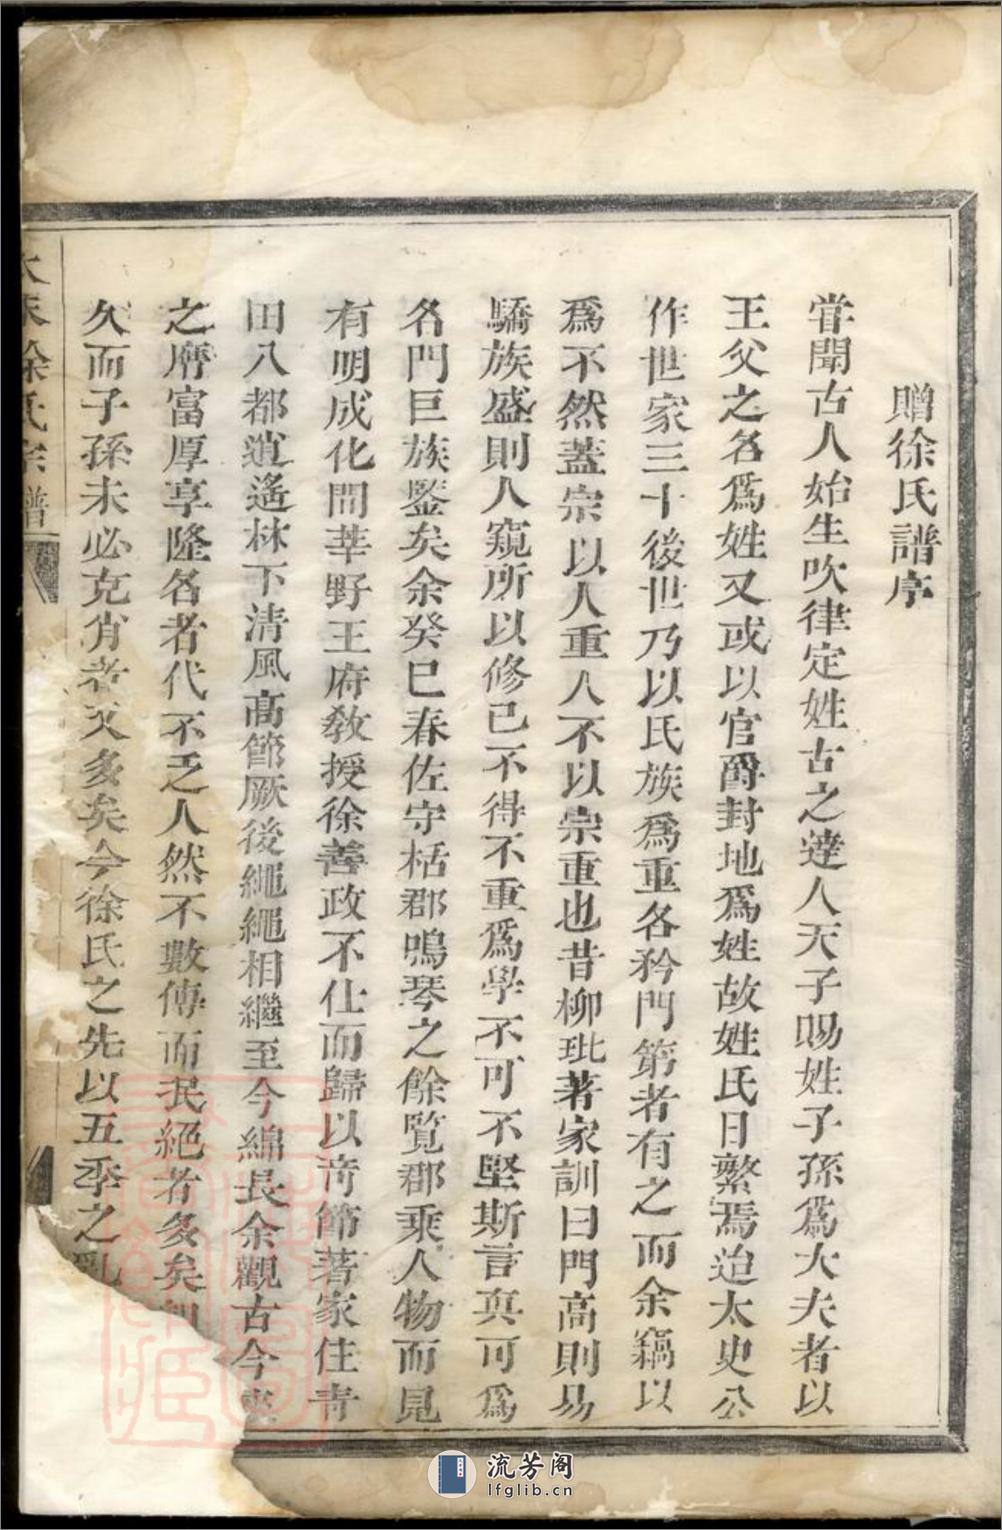 贈徐氏譜序
甞聞古人始生吹律定姓古之達人天子賜姓子孫爲大夫者以
王父之名爲姓又或以官爵封地爲姓故姓氏日繁焉迨太史公
作世家三十後世乃以氏族爲重各矜門第者有之而余竊以
爲不然蓋宗以人重人不以宗重也昔柳玭著家訓曰門高則易
驕族盛則人窺所以修己不得不重爲學不可不堅斯言真可爲
名門巨族鑒矣余癸巳春佐守栝郡鳴琴之餘覧郡乘人物而見
有明成化間莘野王府教授徐善政不仕而歸以奇節著家住青
田八都逍遙林下清風高節厥後繩繩相繼至今綿長余觀古今
之席富厚享隆名者代不乏人然不數傳而泯絕者多矣
久而子孫未必克肖者又多矣今徐氏之先以五季之亂
徐氏宗譜
流芳阁
lfglib.cn